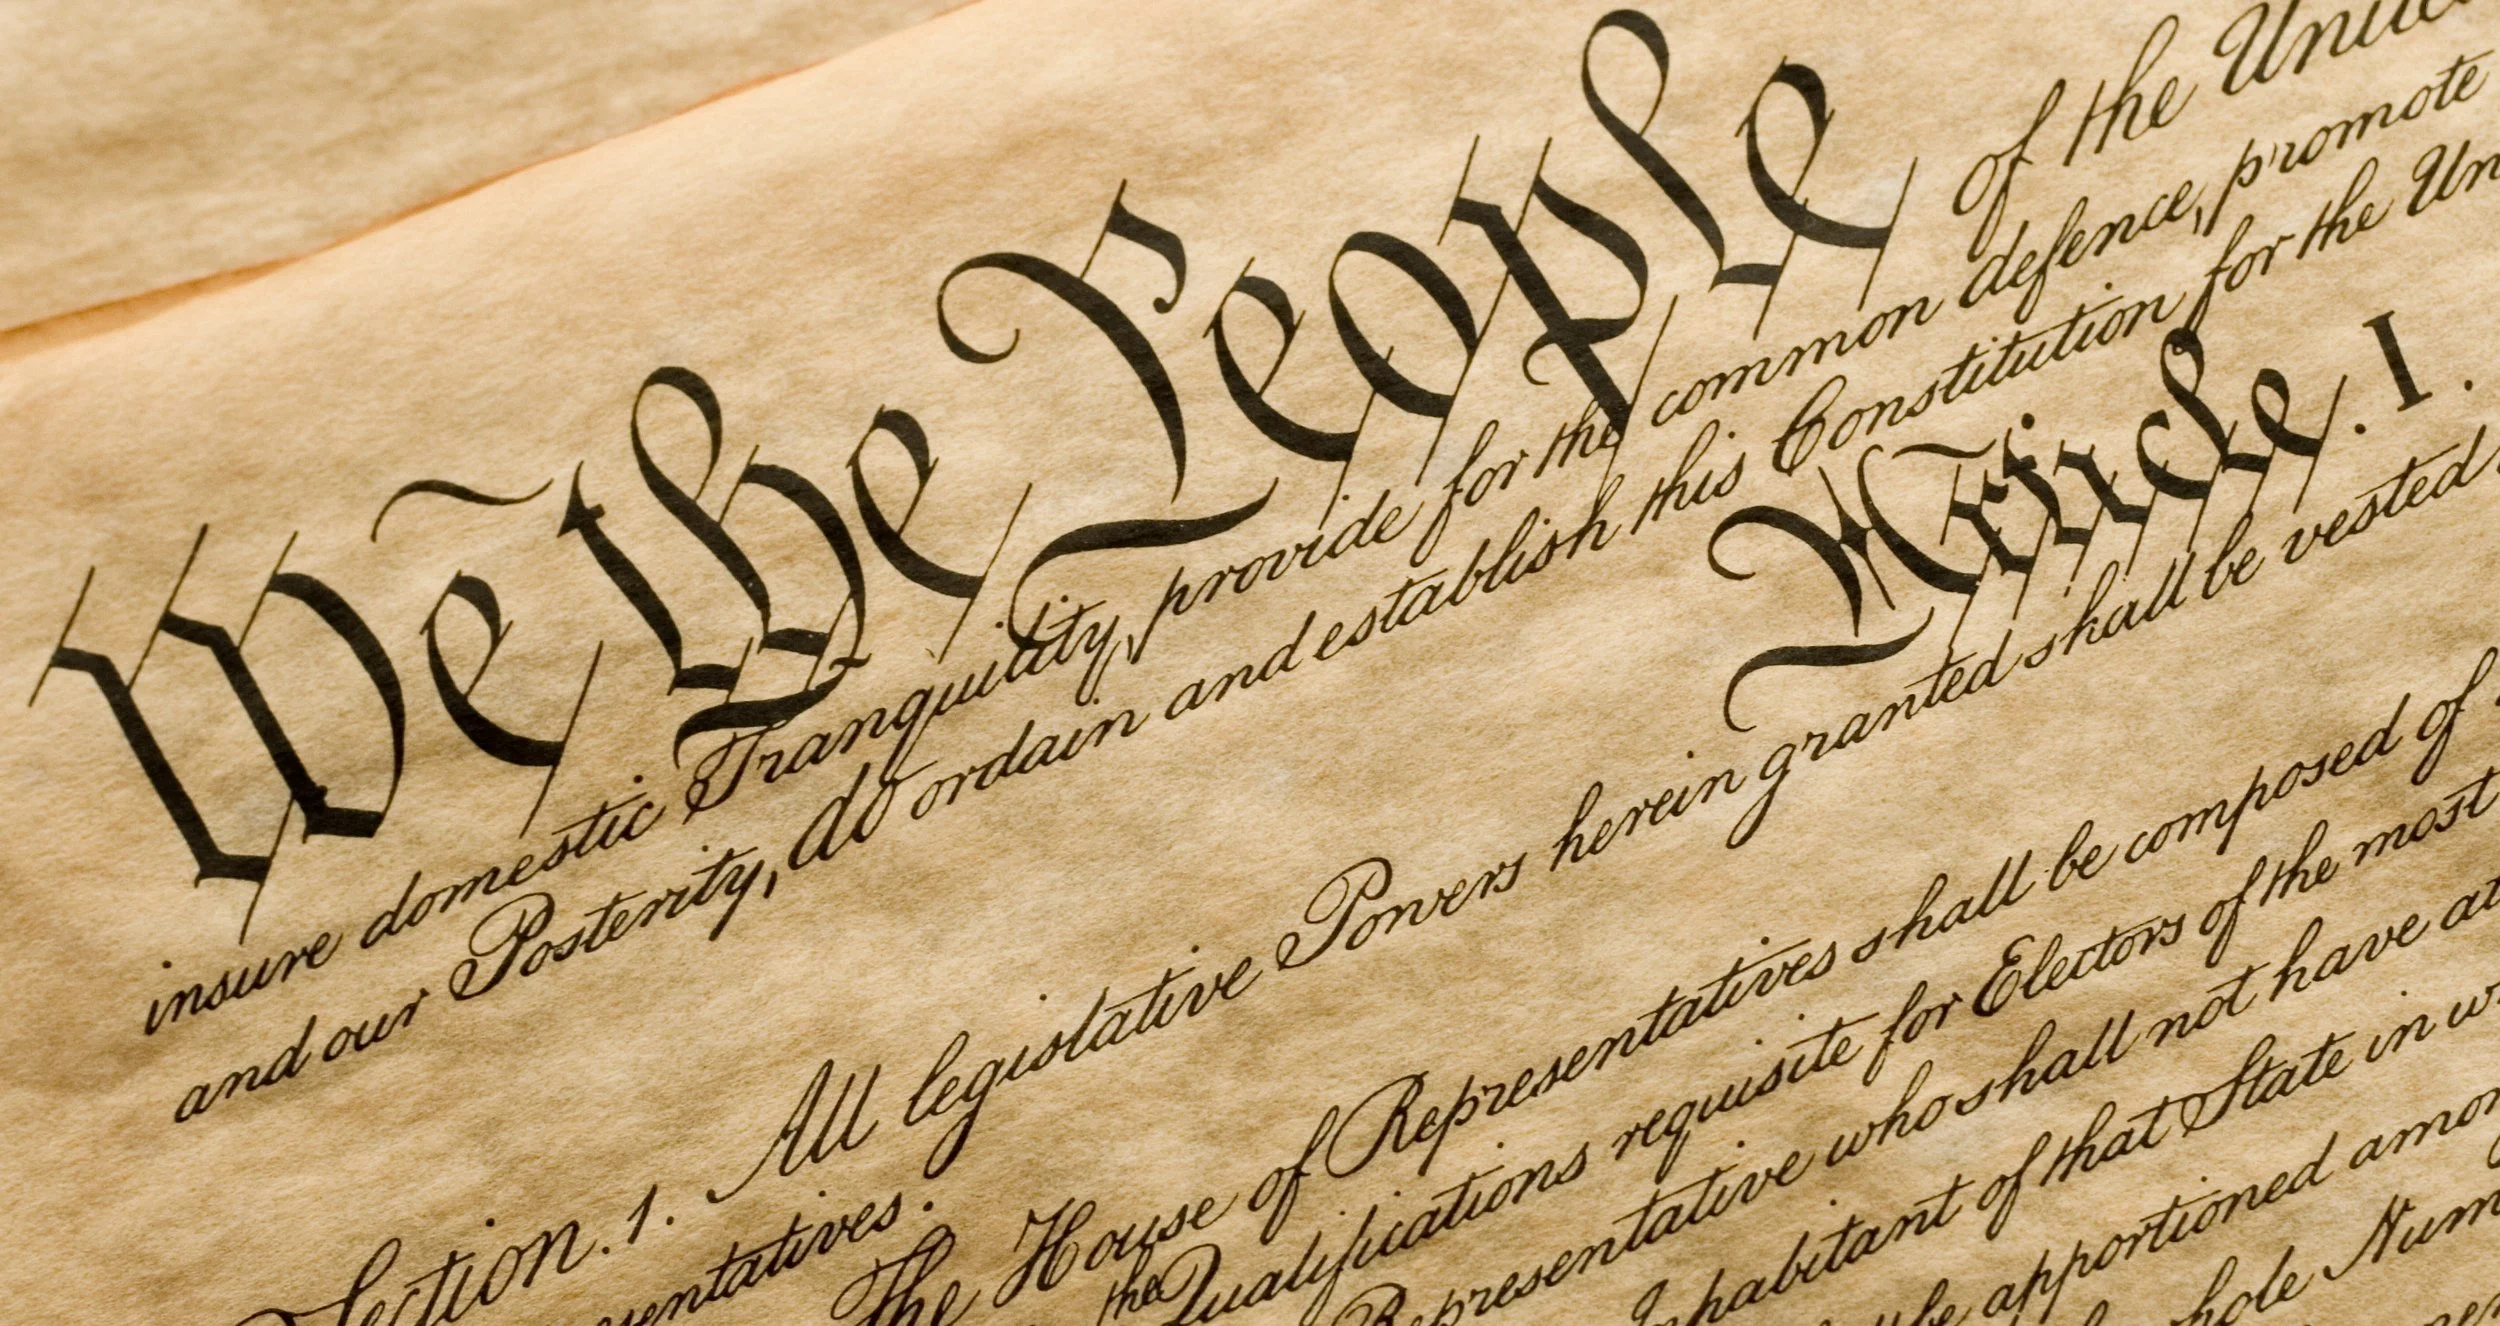 We the People of the United
insure domestic Tranquility, provide for the common defence, promote
and our Posterity, do ordain and establish this Constitution for the Un
Article. I.
Section. 1. All legislative Powers herein granted shall be vested
sentatives.
The House of Representatives shall be composed of
the Qualifications requisite for Electors of the most
Representative who shall not have at
Inhabitant of that State in w
be apportioned amon
hole Num